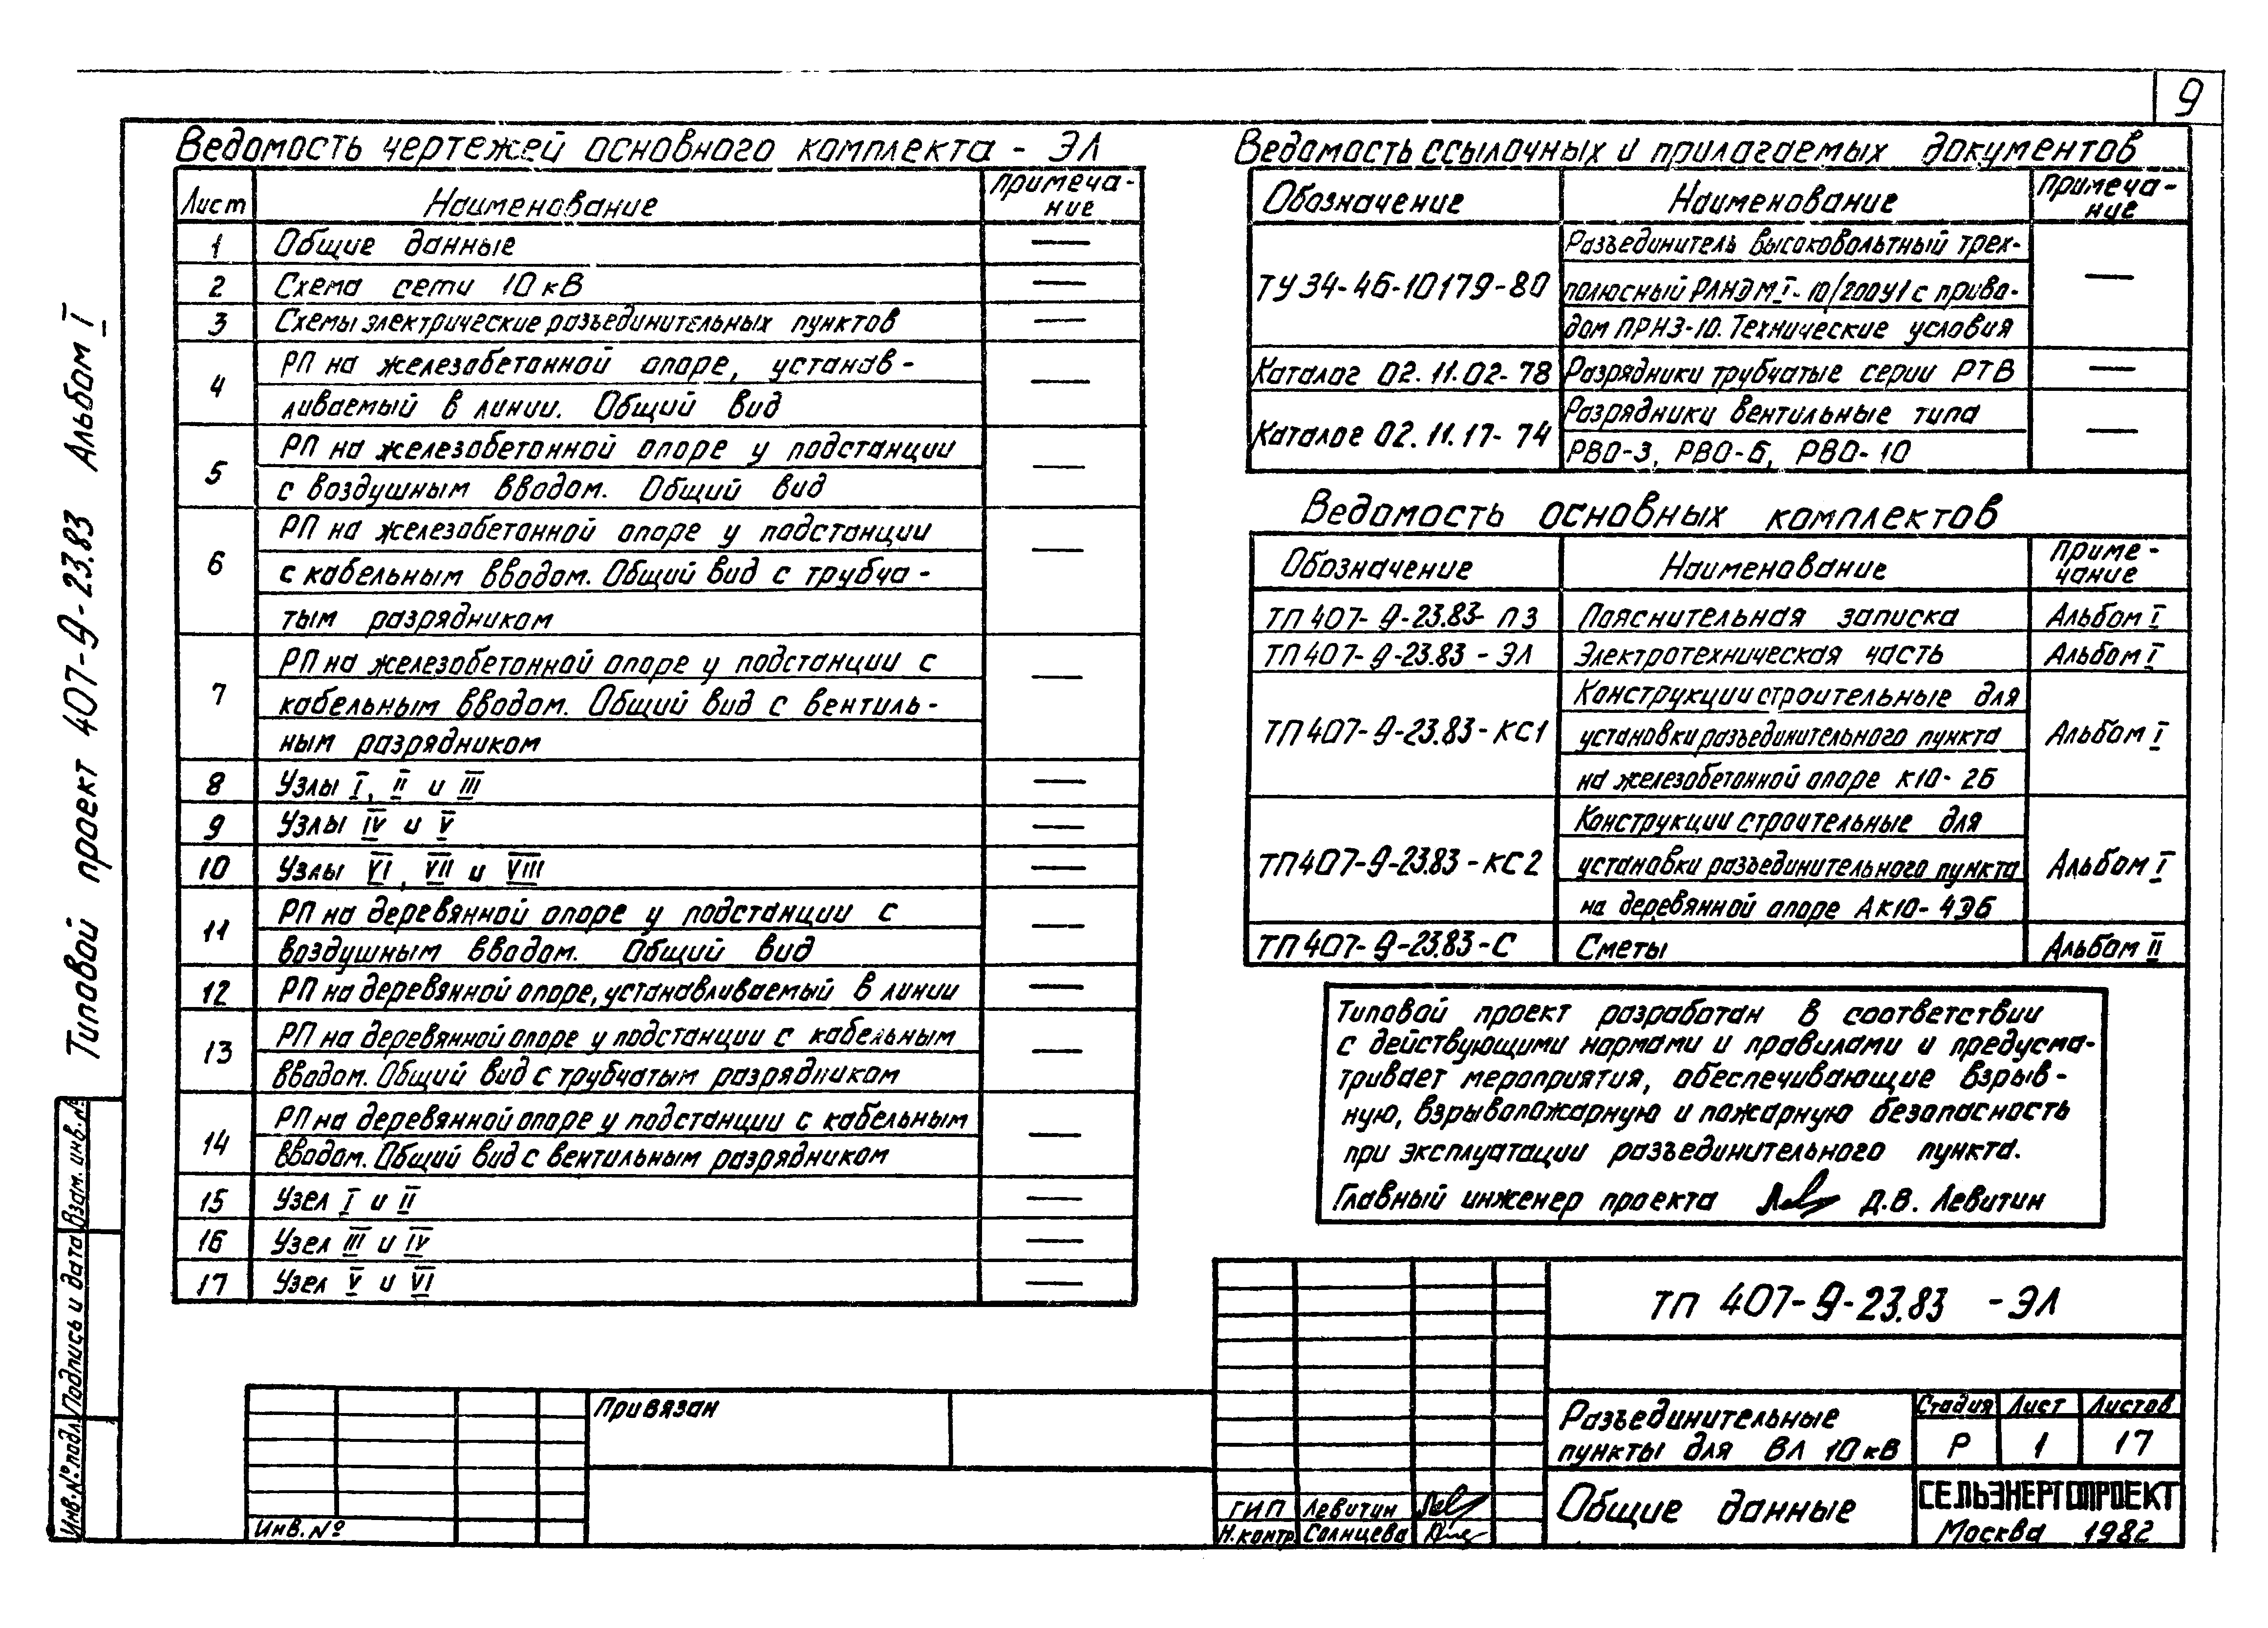 9
Типовой проект 407-9-23.83 Альбом I
Ведомость чертежей основного комплекта - ЭЛ
Лист
Наименование
Примеча-
ние
1
Общие данные
—
2
Схема сети 10 кВ
—
3
Схемы электрические разъединительных пунктов
—
4
РП на железобетонной опоре, устанав-
ливаемый в линии. Общий вид
—
5
РП на железобетонной опоре у подстанции
с воздушным вводом. Общий вид
—
6
РП на железобетонной опоре у подстанции
с кабельным вводом. Общий вид с трубча-
тым разрядником
—
7
РП на железобетонной опоре у подстанции с
кабельным вводом. Общий вид с вентиль-
ным разрядником
—
8
Узлы I, II и III
—
9
Узлы IV и V
—
10
Узлы VI, VII и VIII
—
11
РП на деревянной опоре у подстанции с
воздушным вводом. Общий вид
—
12
РП на деревянной опоре, устанавливаемый в линии
—
13
РП на деревянной опоре у подстанции с кабельным
вводом. Общий вид с трубчатым разрядником
—
14
РП на деревянной опоре у подстанции с кабельным
вводом. Общий вид с вентильным разрядником
—
15
Узел I и II
—
16
Узел III и IV
—
17
Узел V и VI
—
Ведомость ссылочных и прилагаемых документов
Обозначение
Наименование
Примеча-
ние
ТУ 34-46-10179-80
Разъединитель высоковольтный трех-
полюсный РЛНДМI-10/200У1 с приво-
дом ПРНЗ-10. Технические условия
—
Каталог 02.11.02-78
Разрядники трубчатые серии РТВ
—
Каталог 02.11.17-74
Разрядники вентильные типа
РВО-3, РВО-6, РВО-10
—
Ведомость основных комплектов
Обозначение
Наименование
Приме-
чание
ТП 407-9-23.83-ПЗ
Пояснительная записка
Альбом I
ТП 407-9-23.83-ЭЛ
Электротехническая часть
Альбом I
ТП 407-9-23.83-КС1
Конструкции строительные для
установки разъединительного пункта
на железобетонной опоре К10-2Б
Альбом I
ТП 407-9-23.83-КС2
Конструкции строительные для
установки разъединительного пункта
на деревянной опоре
Альбом I
ТП 407-9-23.83-С
Сметы
Альбом II
Типовой проект разработан в соответствии
с действующими нормами и правилами и предусма-
тривает мероприятия, обеспечивающие взрыв-
ную, взрывопожарную и пожарную безопасность
при эксплуатации разъединительного пункта.
Главный инженер проекта Д.В. Левитин
ТП 407-9-23.83 -ЭЛ
Разъединительные
пункты для ВЛ 10 кВ
Стадия
Лист
Листов
Р
1
17
Общие данные
СЕЛЬЭНЕРГОПРОЕКТ
Москва 1982
ГИП Левитин
Н.контр. Солнцева
Привязан
Инв. №
Инв. № подл.
Подпись и дата
Взам. инв. №